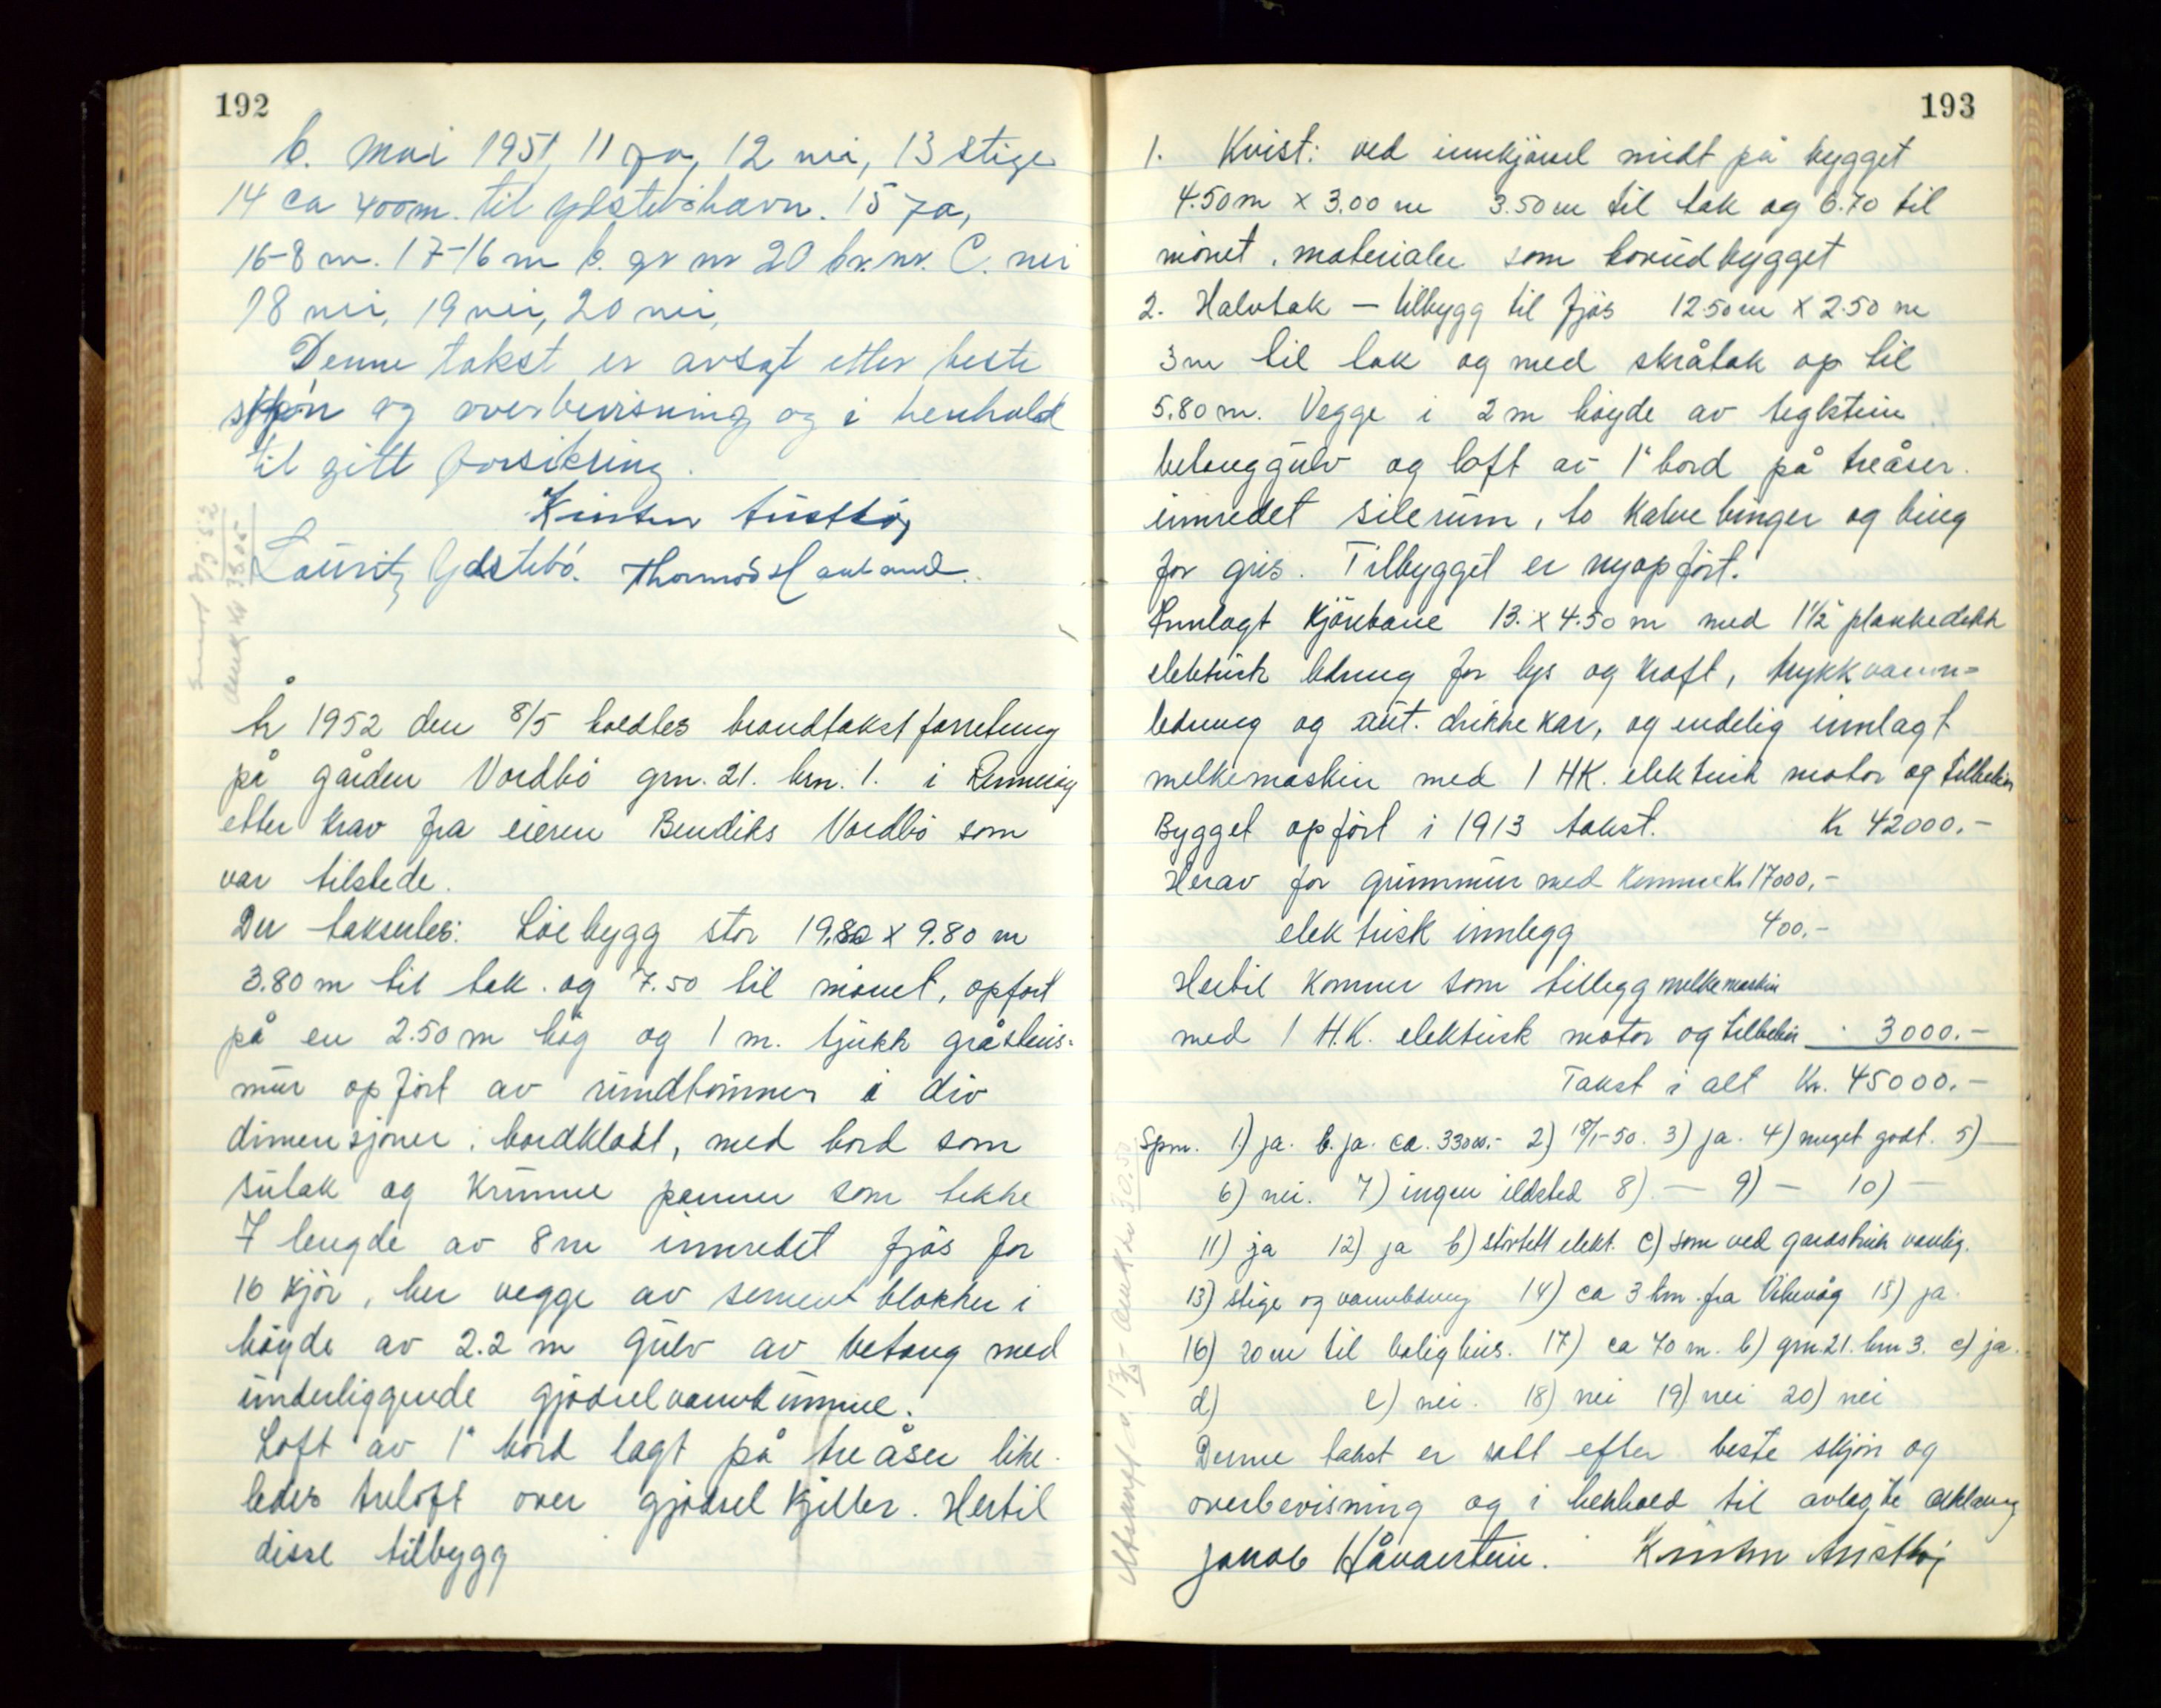 192
b. mai 1951, 11 ja, 12 nei, 13 stige
14 ca 400 m. til Ydstebøhavn. 15 ja,
16-8 m. 17-16 m b. gr nr 20 br. nr. C. nei
18 nei, 19 nei, 20 nei,
Denne takst er avsagt etter beste
skjøn og overbevisning og i henhold
til gitt forsikring.
Kristen Austbø
Lauritz Ydstebø. Thormod Hauland.
År 1952 den 8/5 holdtes brandtakstforretning
på gården Vordbø grn. 21. brn. 1. i Rennesøy
etter krav fra eieren Bendiks Vordbø som
var tilstede.
Der takseres: Løebygg stor 19.80 x 9.80 m
3.80 m til tak. og 7.50 til mønet, opført
på en 2.50 m høg og 1 m. tjukk gråsteins=
mur opført av rundtømmer i div
dimensjoner. bordklædt, med bord som
sutak og krumme panner som tekke
I lengde av 8 m innredet fjøs for
16 kjør, her vegge av sement blokker i
høyde av 2.2 m Gulv av betong med
underliggende gjødselvannkumme.
Loft av 1" bord lagt på treåser like-
ledes treloft over gjødselkjeller. Hertil
disse tilbygg
193
1. Kvist: ved innkjørsel midt på bygget
4.50 m x 3.00 m 3.50 m til tak og 6.70 til
mønet. materialer som hovudbygget
2. Halvtak – tilbygg til fjøs 12.50 m x 2.50 m
3 m til tak og med skråtak op til
5.80 m. Vegge i 2 m høyde av teglstein
betonggulv og loft av 1" bord på treåser.
innredet silerum, to kalvebinger og bing
for gris. Tilbygget er nyopført.
Innlagt kjørebane 13. x 4.50 m med 1½" plankedekk
elektrisk ledning for lys og kraft, trykkvann=
ledning og aut. drikkekar, og endelig innlagt
melkemaskin med 1 HK. elektrisk motor og tilbehør
Bygget opført i 1913 takst. Kr 42000.-
Herav for grunnmur med kumme Kr. 17000,-
elektrisk innlegg 400.-
Hertil kommer som tillegg melkemaskin
med 1 H.K. elektrisk motor og tilbehør 3000.-
Takst i alt Kr. 45000.-
Spm. 1) ja. b. ja. ca. 33000.- 2) 18/1-50. 3) ja. 4) meget godt. 5) —
6) nei. 7) ingen ildsted 8). — 9) — 10) —
11) ja 12) ja b) støvtett elekt. c) som ved gardsbruk vanlig.
13) stige og vannledning 14) ca 3 km. fra Vikevåg 15) ja.
16) 20 m til bolighus. 17) ca 70 m. b) grn 21. brn 3. c) ja.
d) e) nei. 18) nei 19) nei 20) nei
Denne takst er satt efter beste skjøn og
overbevisning og i henhold til avlagte erklæring
Jakob Håvarstein. Kristen Austbø